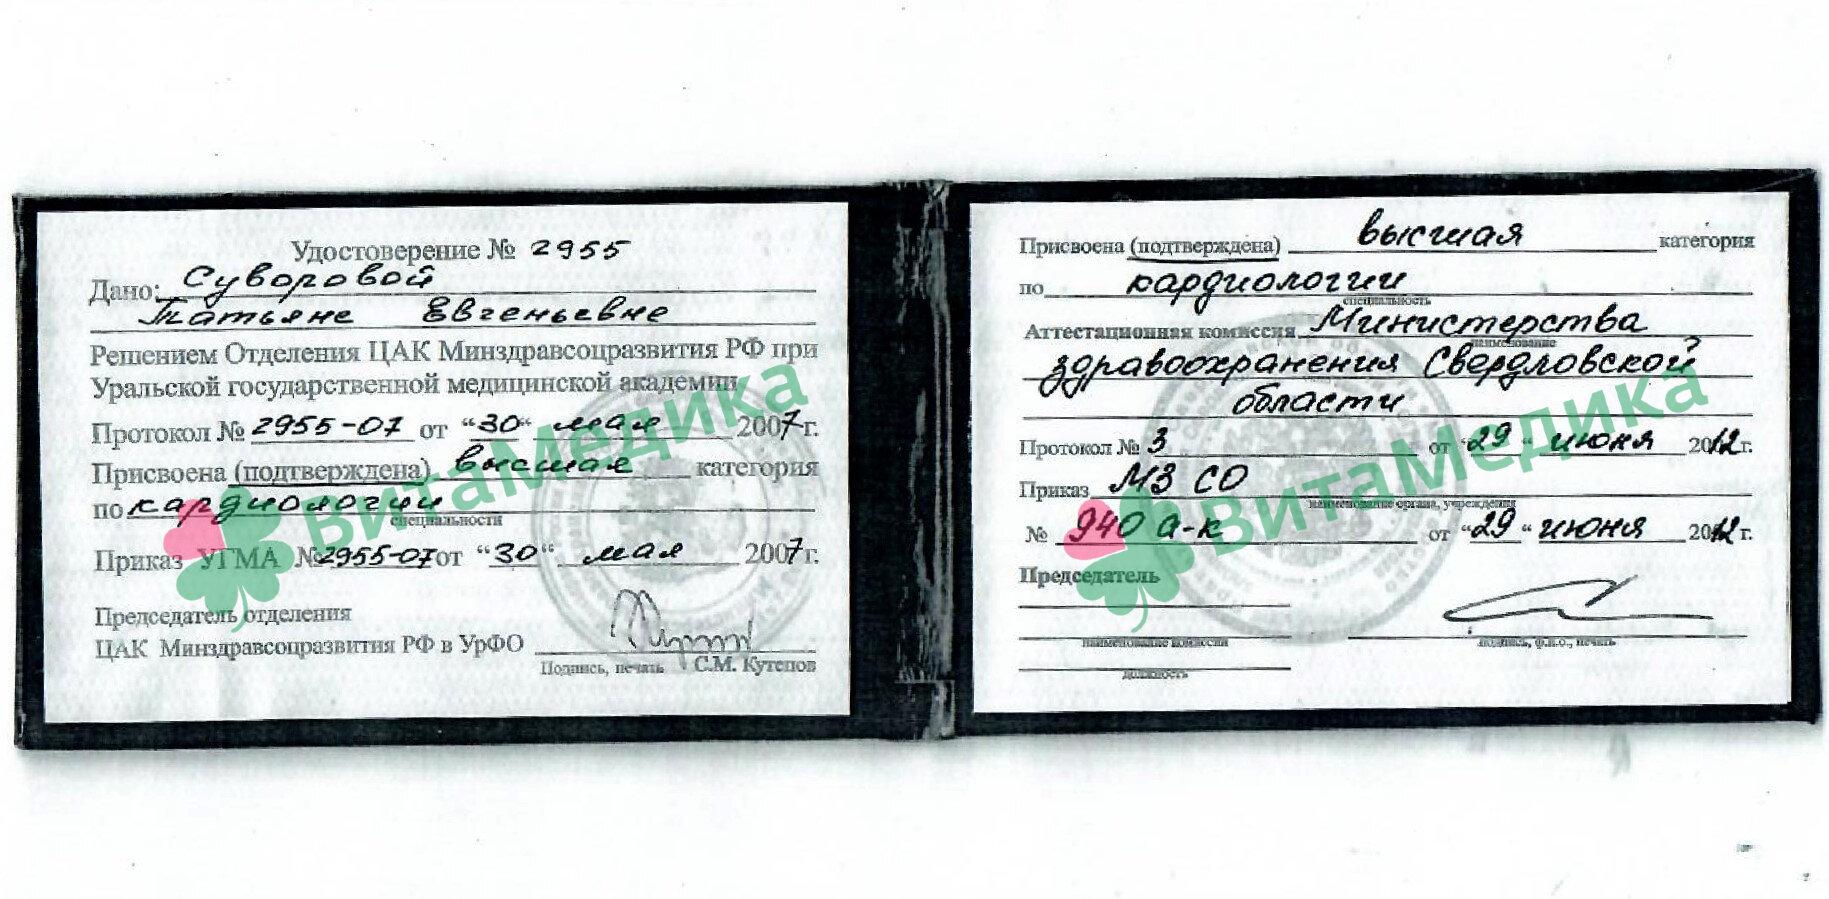 Удостоверение № 2955
Дано: Суворовой
Татьяне Евгеньевне
Решением Отделения ЦАК Минздравсоцразвития РФ при
Уральской государственной медицинской академии
Протокол № 2955-07 от "30" мая 2007 г.
Присвоена (подтверждена) высшая категория
по кардиологии
специальности
Приказ УГМА №2955-07 от "30" мая 2007 г.
Председатель отделения
ЦАК Минздравсоцразвития РФ в УрФО
Подпись, печать С.М. Кутепов
ВитаМедика
Присвоена (подтверждена) высшая категория
по кардиологии
специальность
Аттестационная комиссия Министерства
наименование
здравоохранения Свердловской
области
Протокол № 3 от "29" июня 2012 г.
Приказ МЗ СО
наименование органа, учреждения
№ 940 а-к от "29" июня 2012 г.
Председатель
наименование комиссии
подпись, ф.и.о., печать
должность
ВитаМедика